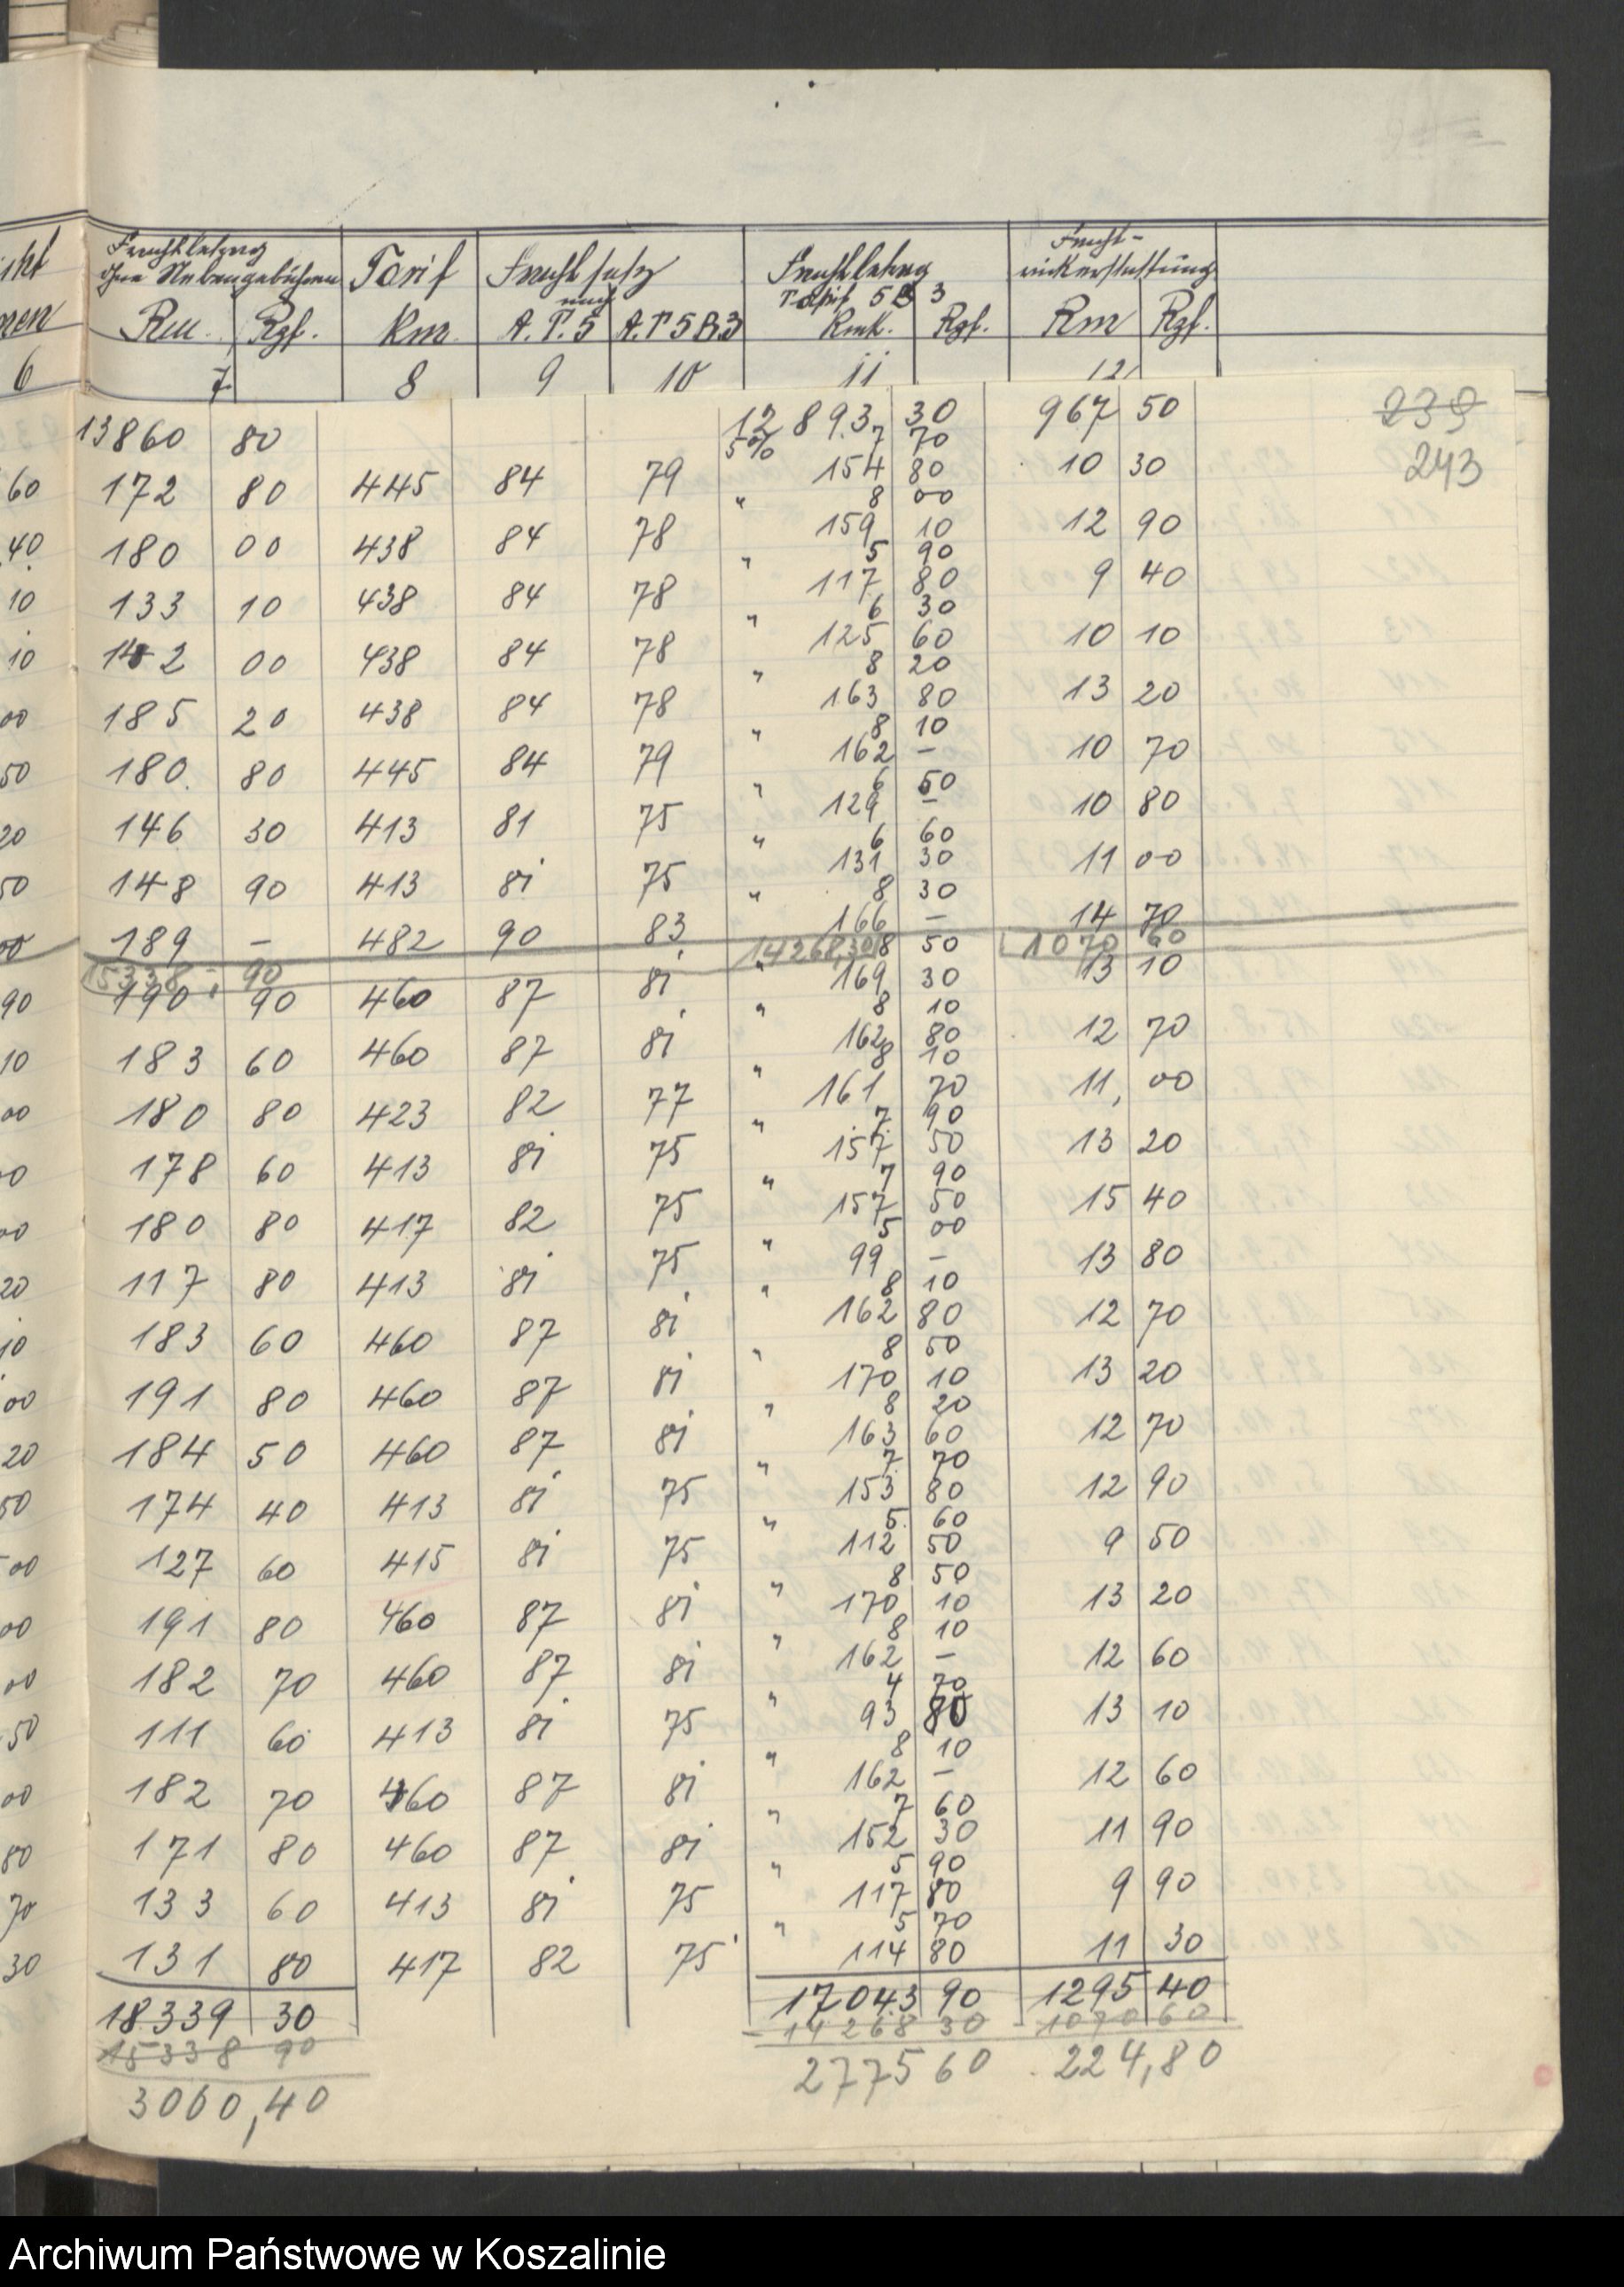 239
243
Frachtbetrag ohne Nebengebühren Tarif Frachtsatz nach Frachtbetrag Tarif 5 B 3 Fracht-rückerstattung
Rm. Rgf. Km. A.T.5 A.T 5 B.3 Rmk. Rgf. Rm Rgf.
6 7 8 9 10 11 12
13860 80 12 893 30 967 50
5% 7 70
60 172 80 445 84 79 154 80 10 30
" 8 00
40 180 00 438 84 78 159 10 12 90
" 5 90
10 133 10 438 84 78 117 80 9 40
" 6 30
10 142 00 438 84 78 125 60 10 10
" 8 20
00 185 20 438 84 78 163 80 13 20
" 8 10
50 180. 80 445 84 79 162 – 10 70
" 6 50
20 146 30 413 81 75 129 – 10 80
" 6 60
50 148 90 413 81 75 131 30 11 00
" 8 30
00 189 – 482 90 83 166 – 14 70
15338 90 14268,30 1070 60
" 8 50
90 190 90 460 87 81 169 30 13 10
" 8 10
10 183 60 460 87 81 162 80 12 70
" 8 10
00 180 80 423 82 77 161 70 11, 00
" 7 90
178 60 413 81 75 157 50 13 20
" 7 90
180 80 417 82 75 157 50 15 40
" 5 00
20 117 80 413 81 75 99 – 13 80
" 8 10
10 183 60 460 87 81 162 80 12 70
" 8 50
00 191 80 460 87 81 170 10 13 20
" 8 20
20 184 50 460 87 81 163 60 12 70
" 7 70
50 174 40 413 81 75 153 80 12 90
" 5 60
00 127 60 415 81 75 112 50 9 50
" 8 50
00 191 80 460 87 81 170 10 13 20
" 8 10
00 182 70 460 87 81 162 – 12 60
" 4 70
50 111 60 413 81 75 93 80 13 10
" 8 10
00 182 70 460 87 81 162 – 12 60
" 7 60
80 171 80 460 87 81 152 30 11 90
" 5 90
70 133 60 413 81 75 117 80 9 90
" 5 70
30 131 80 417 82 75 114 80 11 30
18339 30 17043 90 1295 40
15338 90 – 14268 30 1070 60
3000,40 2775 60 224,80
Archiwum Państwowe w Koszalinie